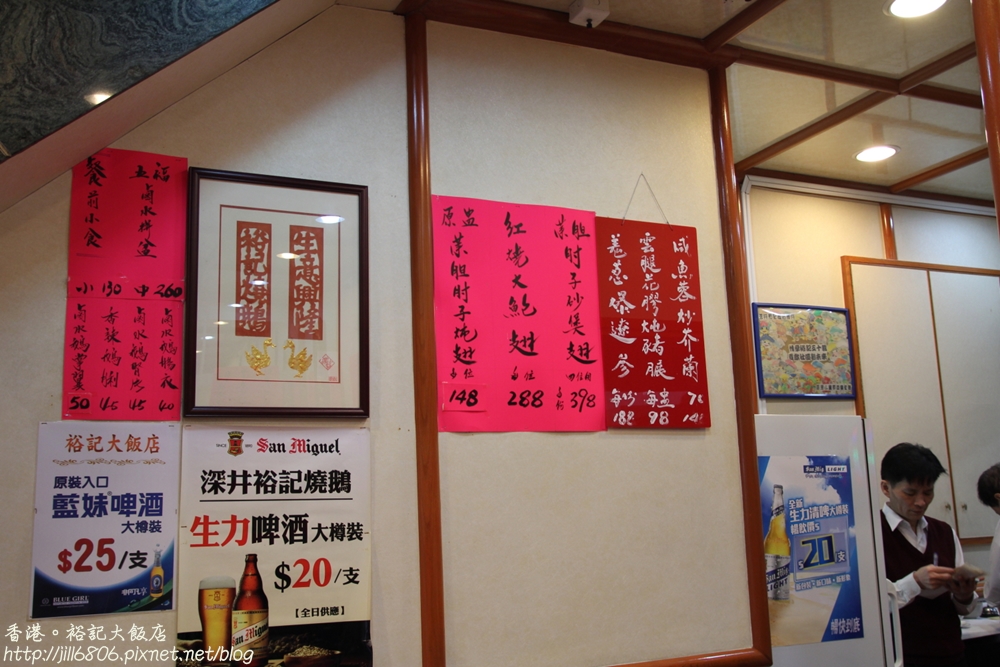 餐前小食
五福
鹵水拼盆
小 130 中 260
50
45
45
40
生意興隆
裕記燒鵝
裕記大飯店
原裝入口
藍妹啤酒
大樽裝
$25/支
BLUE GIRL
SAN MIGUEL
深井裕記燒鵝
生力啤酒大樽裝
$20/支
【全日供應】
San Miguel
原盅
菜膽肘子炖翅
每位
148
紅燒大鮑翅
每位
288
菜膽肘子砂煲翅
四位用
398
羌葱爆遼參
每吵
188
雲腿花膠炖豬䐁
每盅
98
咸魚蓉炒芥蘭
San Mig LIGHT
全新
生力清啤大樽裝
暢飲價$
$20/支
暢快到底
香港。裕記大飯店
http://jill6806.pixnet.net/blog